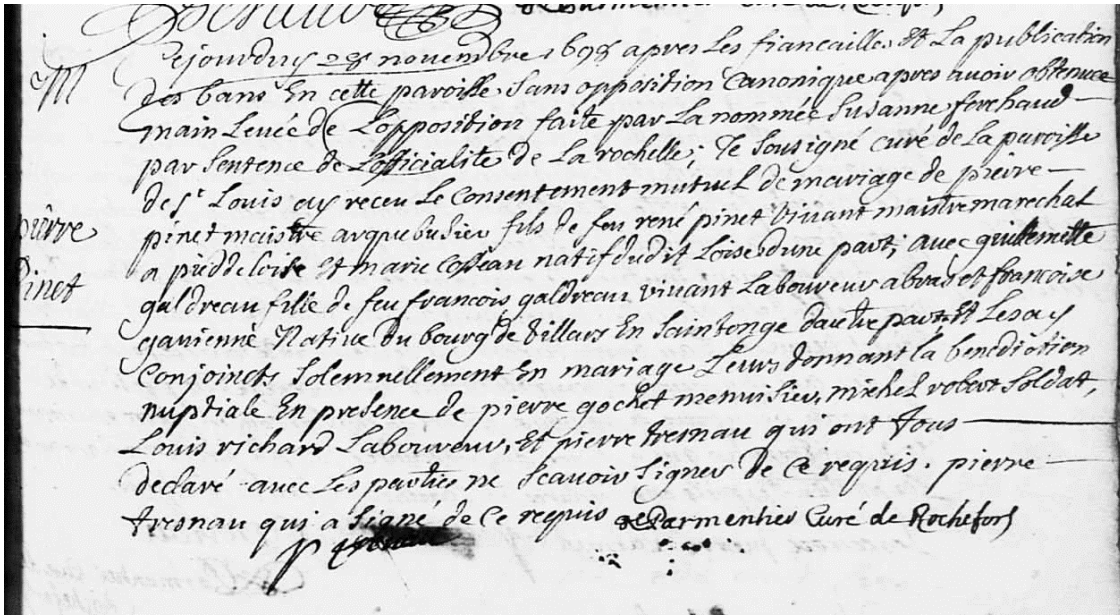 de Parmentier Curé de Rochefort
M
Cejourdhuy 28 novembre 1698 apres Les fiancailles Et La publication
des bans En cette paroisse Sans opposition Canonique apres avoir obtenue
main Levée de L'opposition faite par La nommée Susanne ferchaud
par Sentence de L'officialité de La rochelle; Je Sousigné curé de La paroisse
de St Louis ay receu Le Consentement mutuel de mariage de pierre
pierre
pinet maistre arquebusier fils de feu rené pinet vivant maistre marechal
a et marie natif dudit Loise dune part; avec guillemette
Pinet
galdreau fille de feu francois galdreau vivant Laboureur a bras et francoise
Native du bourg de Villars En Saintonge dautre part, Et Les ay
Conjoincts Solemnellement En mariage Leurs donnant la benediction
nuptiale En presence de pierre gochet menuisier, michel robert Soldat,
Louis richard Laboureur, Et pierre tresnau qui ont tous
declaré avec Les parties ne Scavoir Signer de Ce requis. pierre
tresnau qui a Signé de Ce requis de Parmentier Curé de Rochefort